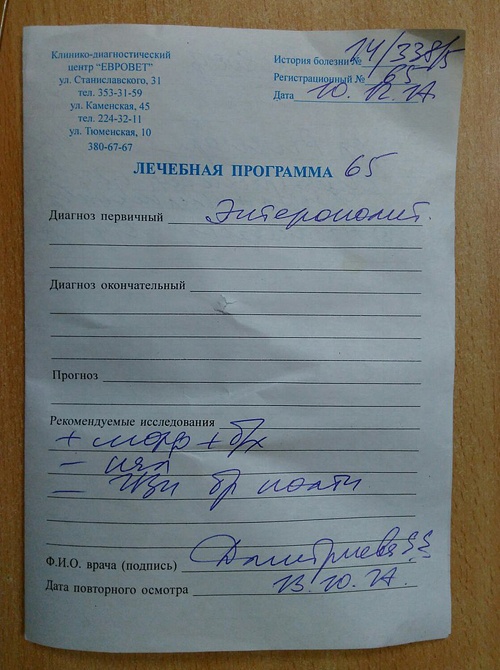 Клинико-диагностический
центр “ЕВРОВЕТ”
ул. Станиславского, 31
тел. 353-31-59
ул. Каменская, 45
тел. 224-32-11
ул. Тюменская, 10
380-67-67
История болезни № 14/3385
Регистрационный № 65
Дата
ЛЕЧЕБНАЯ ПРОГРАММА 65
Диагноз первичный Энтероколит.
Диагноз окончательный
Прогноз
Рекомендуемые исследования
+ морф + б/х
Ф.И.О. врача (подпись) Дмитриева
Дата повторного осмотра 13.10.17.